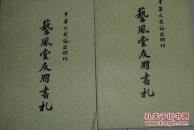 中華文史論叢增刊
藝風堂友朋書札
中華文史論叢增刊
藝風堂友朋書札